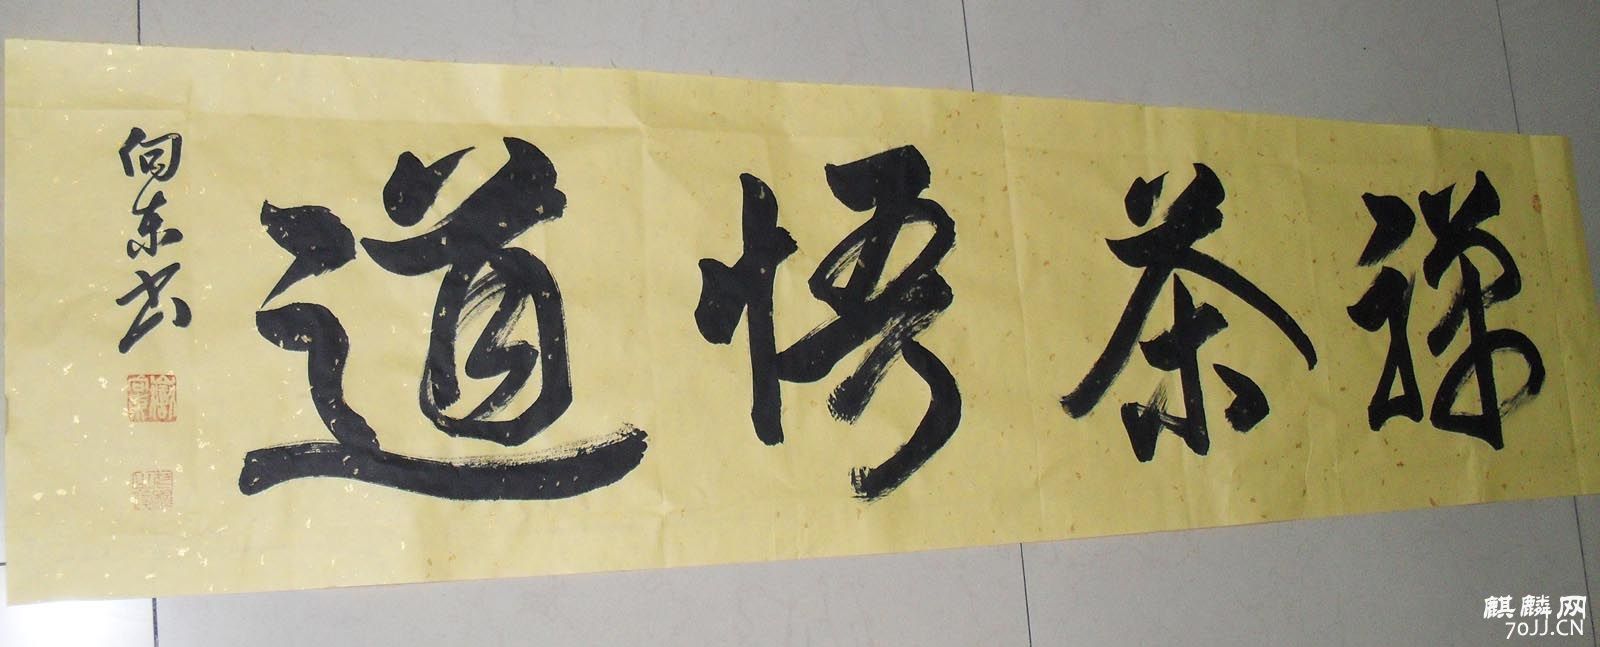 禅茶悟道
向东书
麒麟网
70JJ.CN